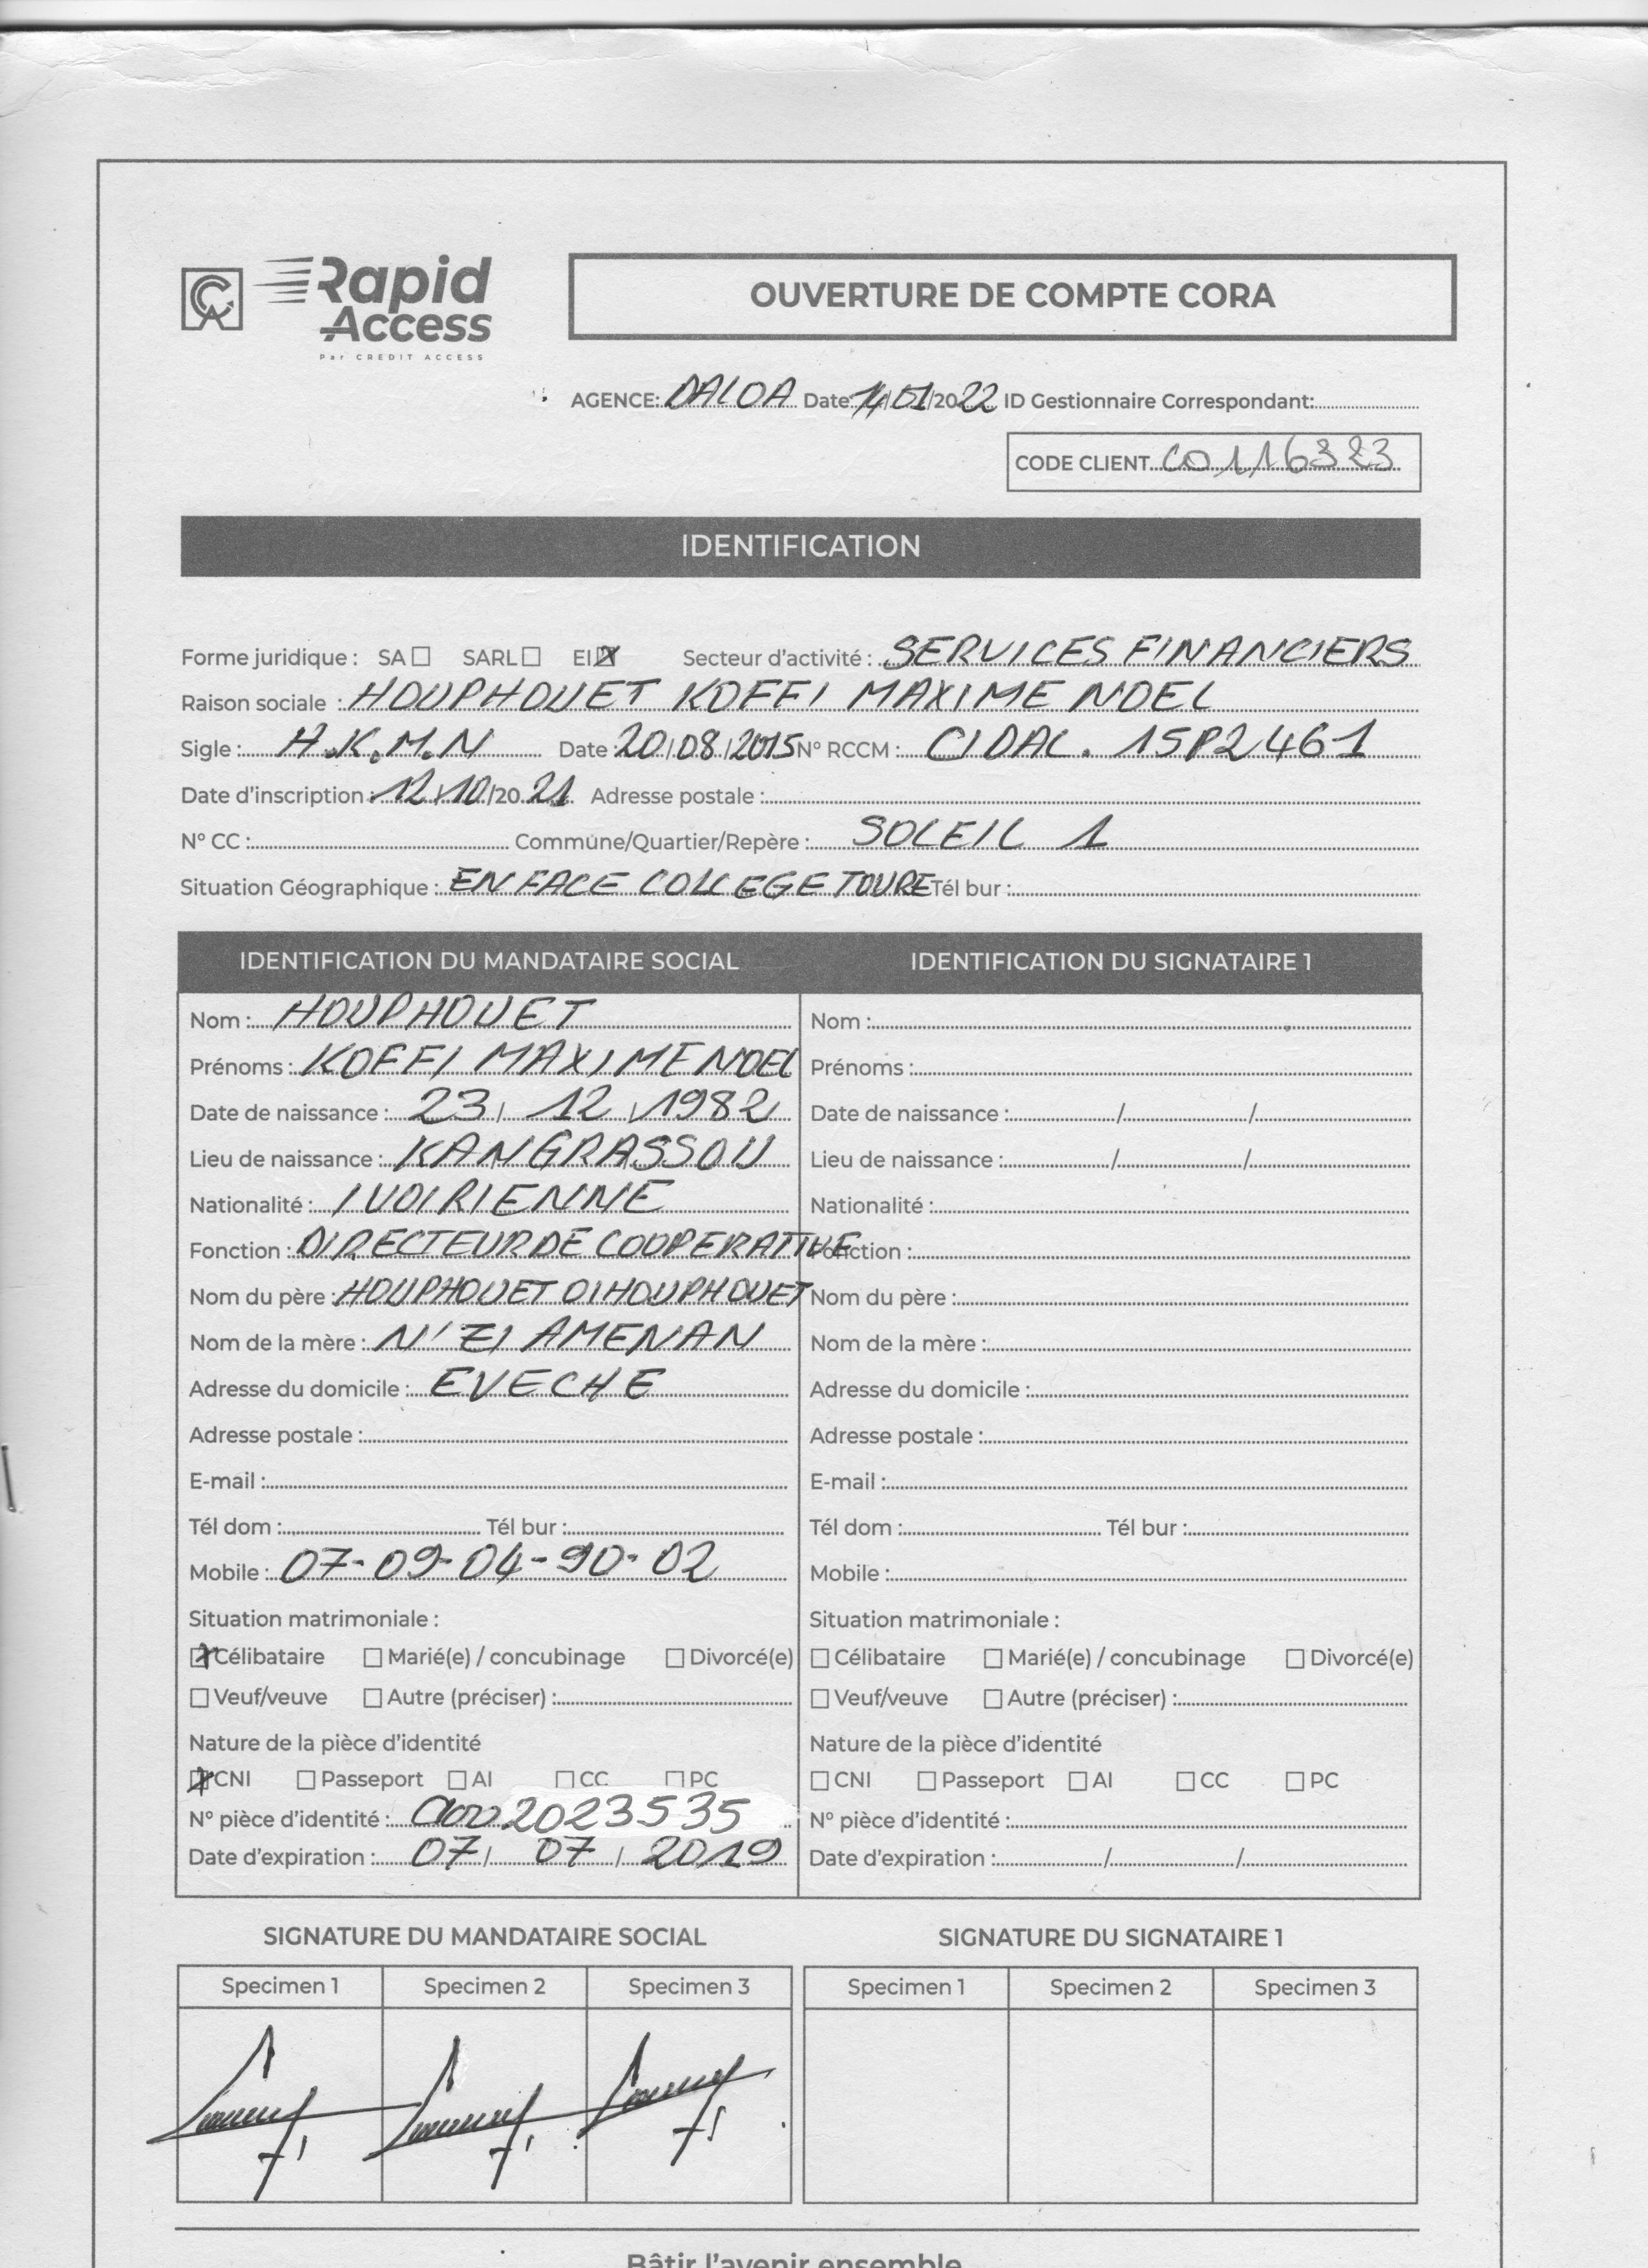 Rapid
Access
Par CREDIT ACCESS
OUVERTURE DE COMPTE CORA
AGENCE: DALOA Date: 14/01/2022 ID Gestionnaire Correspondant:
CODE CLIENT C0116323
IDENTIFICATION
Forme juridique : SA ☐ SARL ☐ EI ☒ Secteur d'activité : SERVICES FINANCIERS
Raison sociale : HOUPHOUET KOFFI MAXIME NOEL
Sigle : H.K.M.N Date : 20/08/2015 N° RCCM : CIDAL. 15P2461
Date d'inscription : 12/10/2021 Adresse postale :
N° CC : Commune/Quartier/Repère : SOLEIL 1
Situation Géographique : EN FACE COLLEGE TOURE Tél bur :
IDENTIFICATION DU MANDATAIRE SOCIAL IDENTIFICATION DU SIGNATAIRE 1
Nom : HOUPHOUET Nom :
Prénoms : KOFFI MAXIME NOEL Prénoms :
Date de naissance : 23/12/1982 Date de naissance : / /
Lieu de naissance : KANGRASSOU Lieu de naissance : / /
Nationalité : IVOIRIENNE Nationalité :
Fonction : DIRECTEUR DE COOPERATIVE Fonction :
Nom du père : HOUPHOUET DIHOUPHOUET Nom du père :
Nom de la mère : N'ZI AMENAN Nom de la mère :
Adresse du domicile : EVECHE Adresse du domicile :
Adresse postale : Adresse postale :
E-mail : E-mail :
Tél dom : Tél bur : Tél dom : Tél bur :
Mobile : 07-09-04-90-02 Mobile :
Situation matrimoniale : Situation matrimoniale :
☒ Célibataire ☐ Marié(e) / concubinage ☐ Divorcé(e) ☐ Célibataire ☐ Marié(e) / concubinage ☐ Divorcé(e)
☐ Veuf/veuve ☐ Autre (préciser) : ☐ Veuf/veuve ☐ Autre (préciser) :
Nature de la pièce d'identité Nature de la pièce d'identité
☒ CNI ☐ Passeport ☐ AI ☐ CC ☐ PC ☐ CNI ☐ Passeport ☐ AI ☐ CC ☐ PC
N° pièce d'identité : N° pièce d'identité :
Date d'expiration : 07/07/2019 Date d'expiration : / /
SIGNATURE DU MANDATAIRE SOCIAL SIGNATURE DU SIGNATAIRE 1
Specimen 1 Specimen 2 Specimen 3 Specimen 1 Specimen 2 Specimen 3
Bâtir l'avenir ensemble